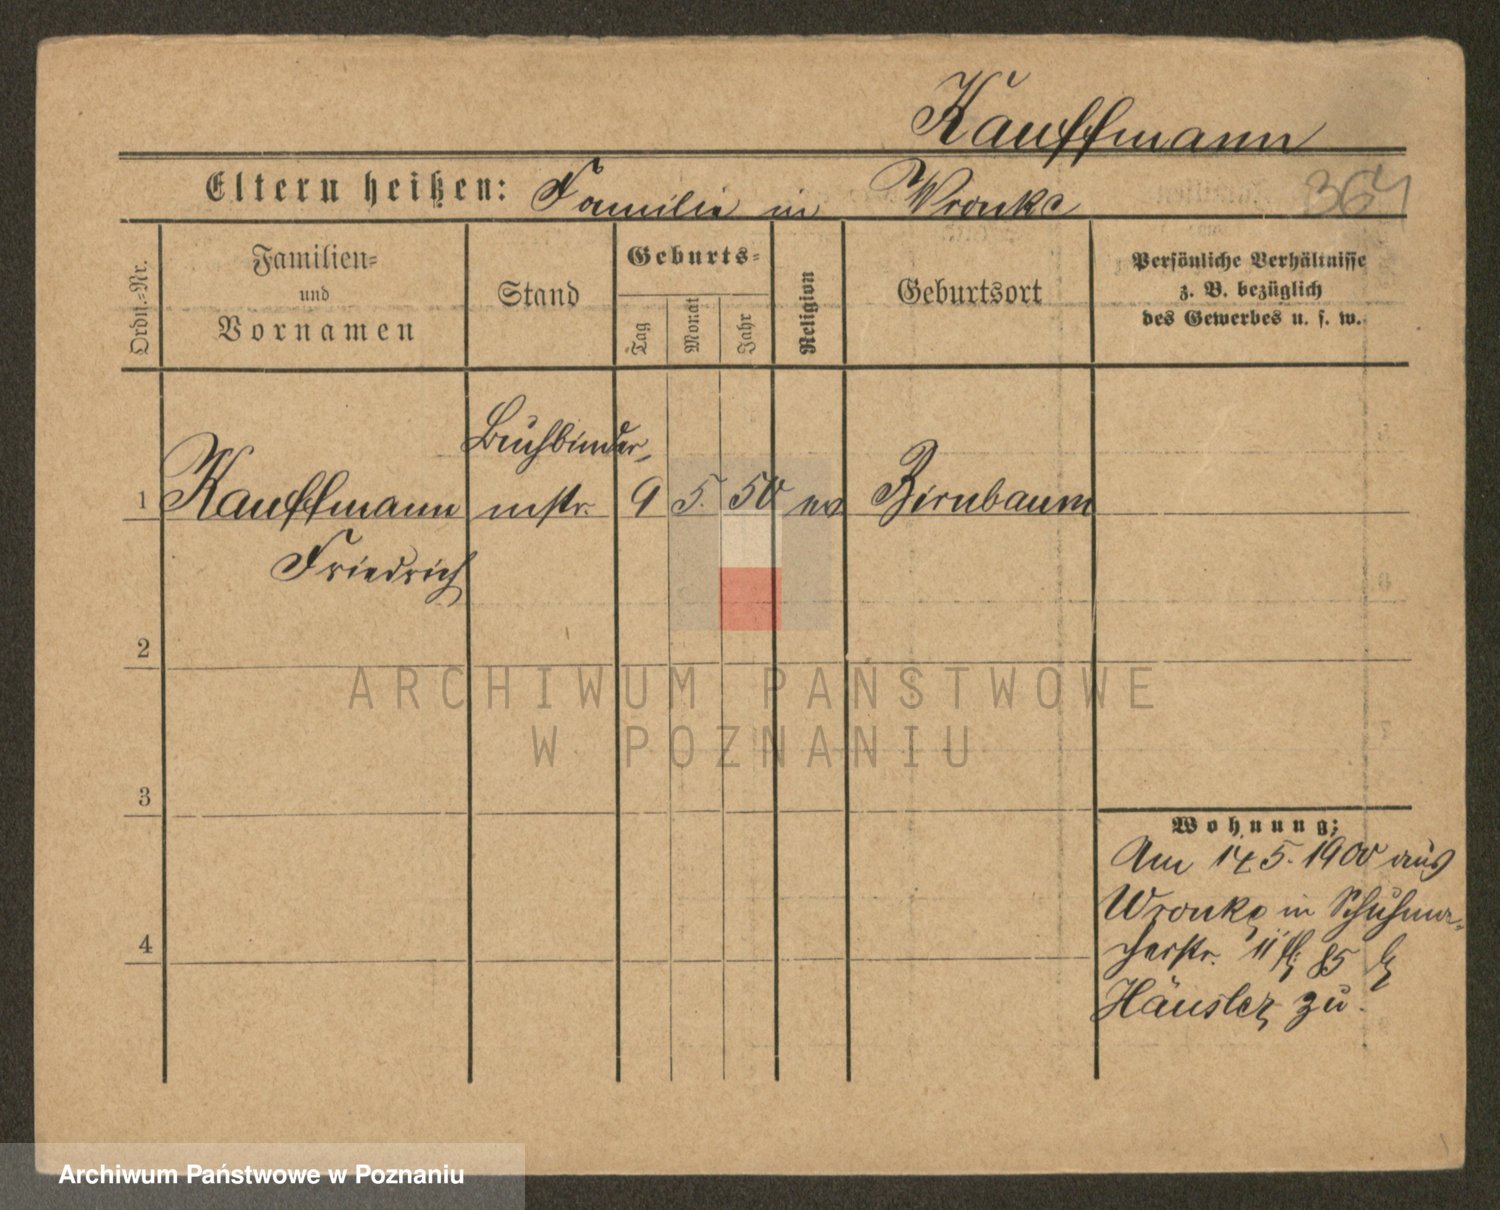 Kauffmann
Eltern heißen: Familie in Wronke
364
Ordn.-Nr.
Familien-
und
Vornamen
Stand
Geburts-
Tag
Monat
Jahr
Religion
Geburtsort
Persönliche Verhältnisse
z. B. bezüglich
des Gewerbes u. s. w.
Buchbinder-
1 Kauffmann mstr. 9 5. 50 ev Birnbaum
Friedrich
2
ARCHIWUM PAŃSTWOWE
W POZNANIU
3
Wohnung:
Am 14 5. 1900 aus
Wronke in Schuhma-
cherstr. 11 85 b
Häusler zu.
4
Archiwum Państwowe w Poznaniu